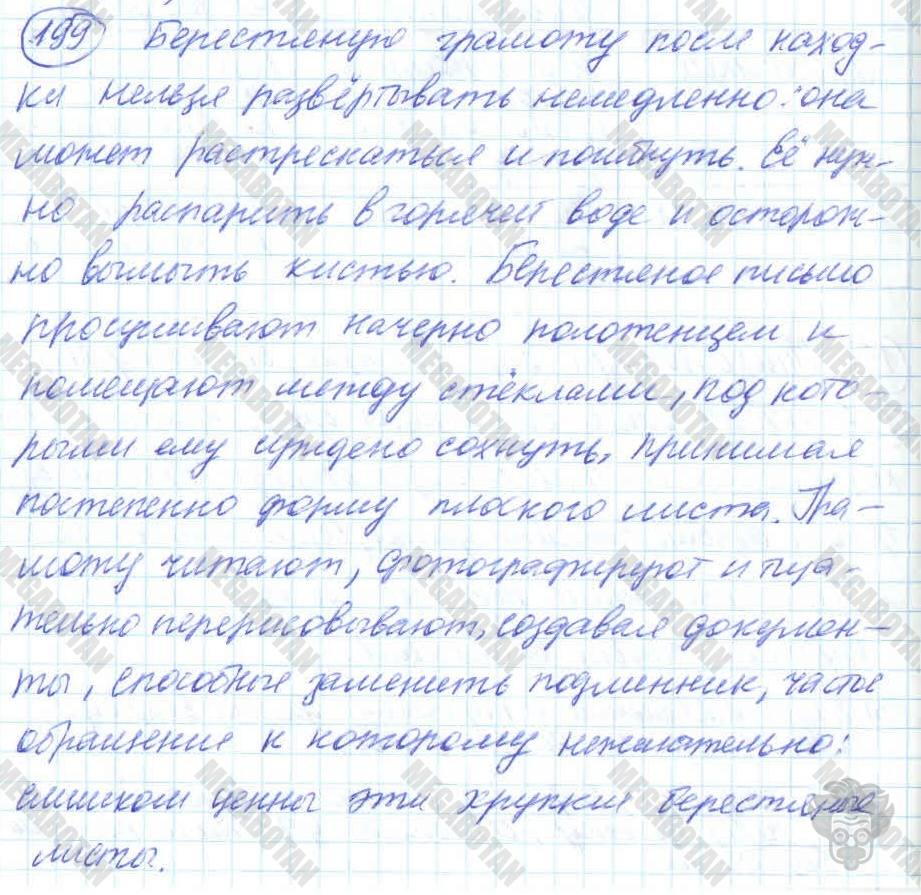 199 Берестяную грамоту после наход-
ки нельзя развёртывать немедленно: она
может растрескаться и погибнуть. Её нуж-
но распарить в горячей воде и осторож-
но вымыть кистью. Берестяное письмо
просушивают начерно полотенцем и
помещают между стёклами, под кото-
рыми ему суждено сохнуть, принимая
постепенно форму плоского листа. Гра-
моту читают, фотографируют и тща-
тельно перерисовывают, создавая докумен-
ты, способные заменить подлинник, частые
обращения к которому нежелательно:
слишком ценны эти хрупкие берестяные
листы.
MEGABOTAN